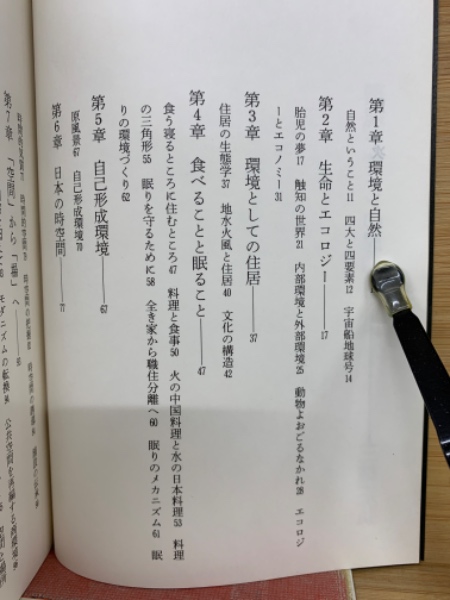 第1章 環境と自然
自然ということ 11 四大と四要素 12 宇宙船地球号 14
第2章 生命とエコロジー 17
胎児の夢 17 触知の世界 21 内部環境と外部環境 25 動物よおごるなかれ 28 エコロジ
ーとエコノミー 31
第3章 環境としての住居 37
住居の生態学 37 地水火風と住居 40 文化の構造 42
第4章 食べることと眠ること 47
食う寝るところに住むところ 47 料理と食事 50 火の中国料理と水の日本料理 53 料理
の三角形 55 眠りを守るために 58 全き家から職住分離へ 60 眠りのメカニズム 61 眠
りの環境づくり 62
第5章 自己形成環境 67
原風景 67 自己形成環境 70
第6章 日本の時空間 77
第7章 「空間」から「場」へ
モダニズムの転換